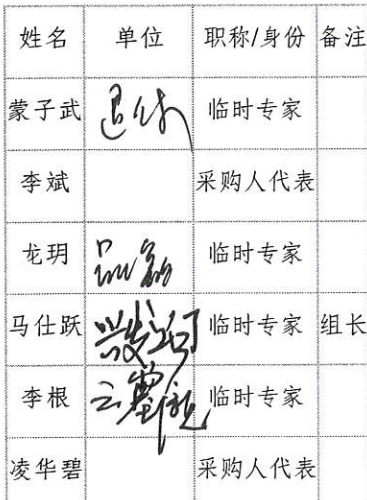 姓名 单位 职称/身份 备注
蒙子武 退休 临时专家
李斌 采购人代表
龙玥 临时专家
马仕跃 临时专家 组长
李根 临时专家
凌华碧 采购人代表